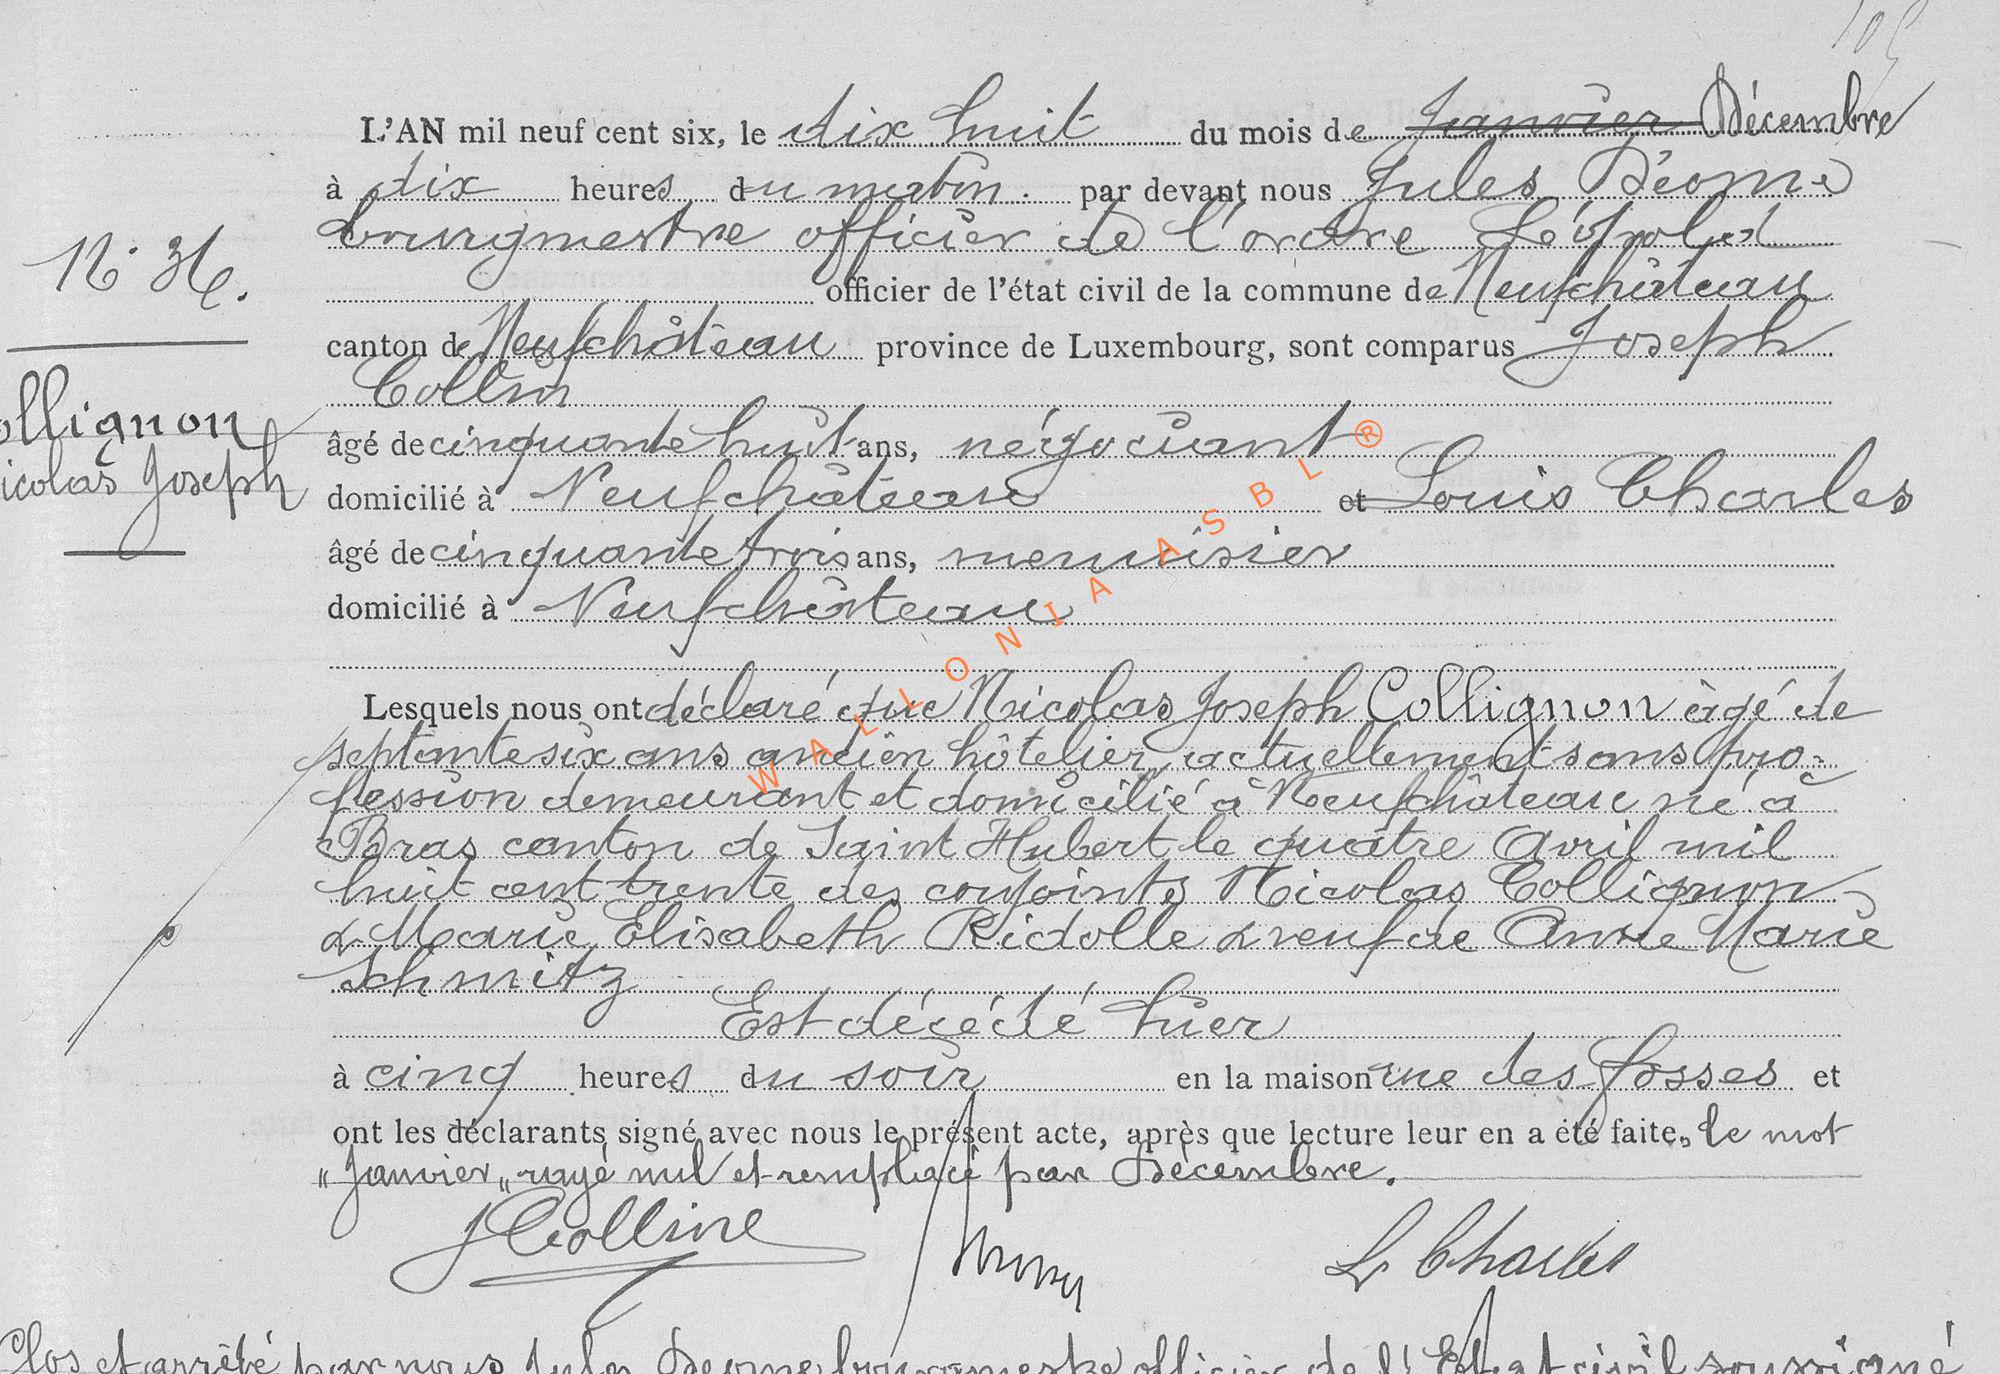 L'AN mil neuf cent six, le dix huit du mois de Janvier Décembre
à dix heures du matin. par devant nous Jules Déome
bourgmestre officier de l'ordre Léopold
officier de l'état civil de la commune de Neufchâteau
canton de Neufchâteau province de Luxembourg, sont comparus Joseph
Collin
âgé de cinquante huit ans, négociant
domicilié à Neufchâteau et Louis Charles
âgé de cinquante trois ans, menuisier
domicilié à Neufchâteau
N° 36.
Collignon
Nicolas Joseph
Lesquels nous ont déclaré que Nicolas Joseph Collignon âgé de
septante six ans ancien hôtelier, actuellement sans pro-
fession demeurant et domicilié à Neufchâteau né à
Bras canton de Saint Hubert le quatre Avril mil
huit cent trente des conjoints Nicolas Collignon
& Marie Elisabeth Ridolle & veuf de Anne Marie
Schmitz
Est décédé hier
à cinq heures du soir en la maison rue des fosses et
ont les déclarants signé avec nous le présent acte, après que lecture leur en a été faite, le mot
"Janvier" rayé nul et remplacé par Décembre.
J Colline
L Charles
Clos et arrêté par nous Jules Déome bourgmestre officier de l'Etat civil soussigné
WALLONIA ASBL ®